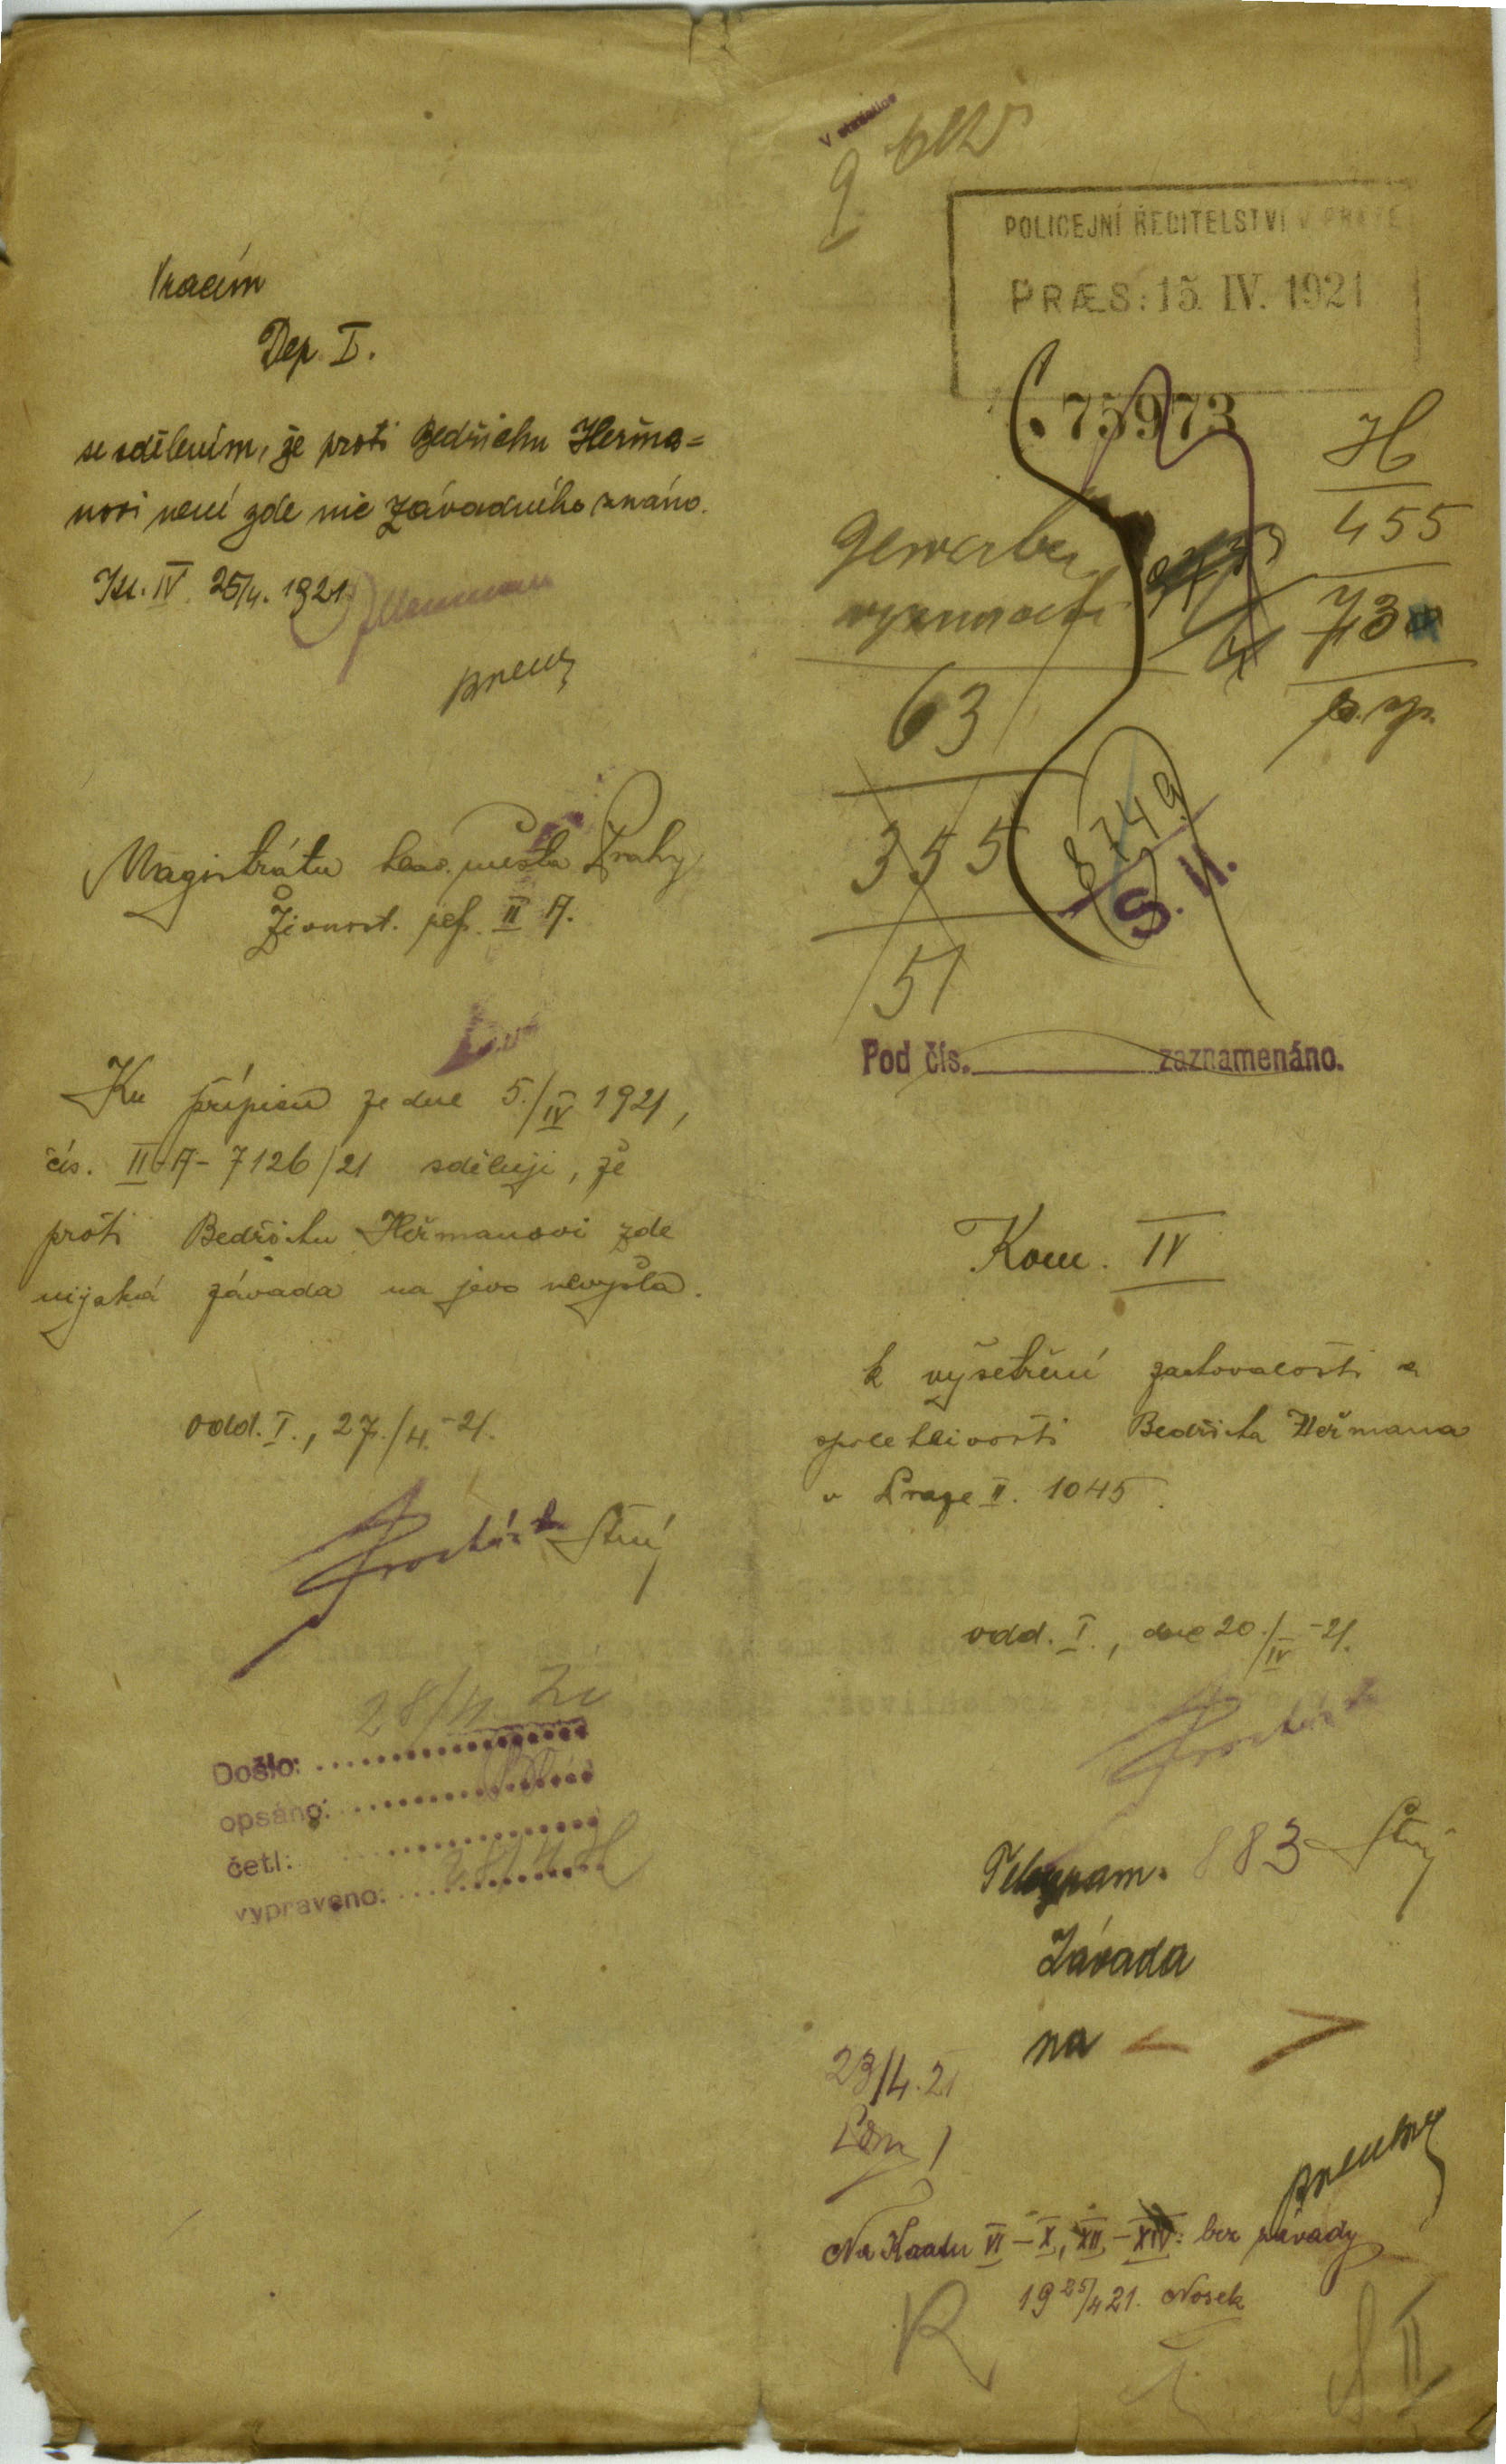 Vracím
Dep. I.
se sdělením, že proti Bedřichu Heřma=
novi není zde nic závadného známo.
IV 25/4. 1921
Magistrátu hlav. města Prahy
Živnost. ref. II A.
Ku přípisu ze dne 5./IV 1921,
čís. II-A-7126/21 sděluji, že
proti Bedřichu Heřmanovi zde
nijaká závada na jevo nevyšla.
odd. I., 27./4.-21.
Procházka Stuj
28/4
Došlo:
opsáno:
četl:
vypraveno:
POLICEJNÍ ŘEDITELSTVÍ V PRAZE
PRÆS: 15. IV. 1921
75973
H
455
73
Gewerbe
63
355
51
8749
S. II.
Pod čís. zaznamenáno.
Kom. IV
k vyšetření zachovalosti a
spolehlivosti Bedřicha Heřmana
v Praze II. 1045.
odd. I., dne 20./IV -21.
Procházka
Telegram. 883
Závada
na
23/4.21
Na Kartu VI - X, XII - XIV: bez závady
19 25/4 21. Nosek
R
S II